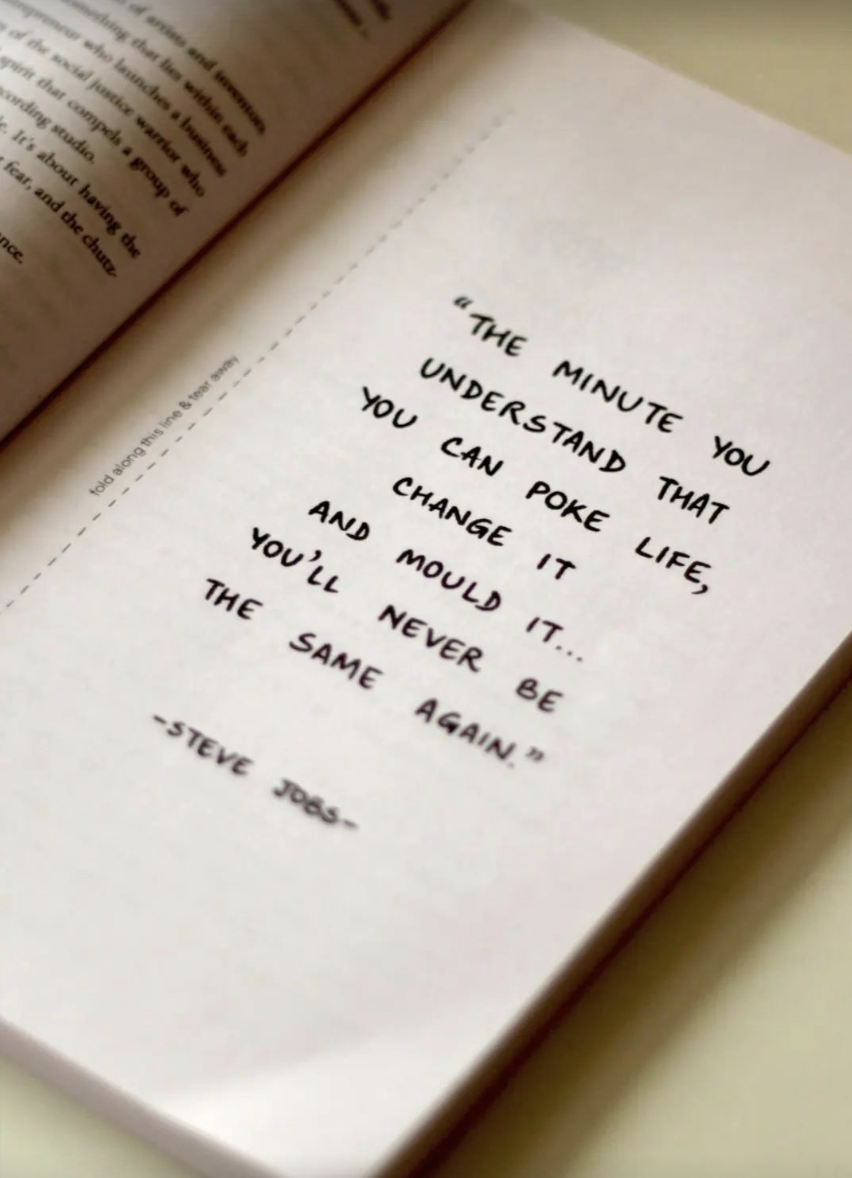 of artists and inventors.
something that lies within each
entrepreneur who launches a business
of the social justice warrior who
spirit that compels a group of
recording studio.
It's about having the
fear, and the chutz-
fold along this line & tear away
“THE MINUTE YOU
UNDERSTAND THAT
YOU CAN POKE LIFE,
CHANGE IT
AND MOULD IT...
YOU'LL NEVER BE
THE SAME AGAIN.”
-STEVE JOBS-